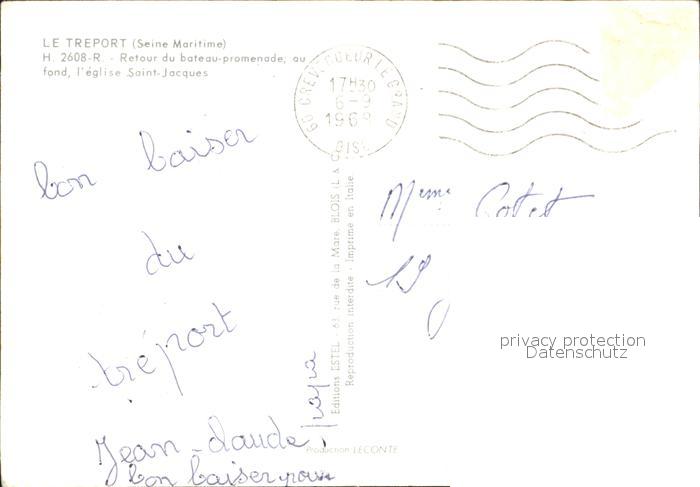 LE TREPORT (Seine Maritime)
H. 2608-R. - Retour du bateau-promenade, au
fond, l'église Saint-Jacques
60 CREVECOEUR LE GRAND
17H30
6-9
1968
OISE
bon baiser
du
tréport
Jean-claude,
papa
bon baiser
Editions ESTEL - 63, rue de la Mare, BLOIS (L. & C.)
Reproduction interdite - Imprimé en Italie
Production LECONTE
Mme
19
privacy protection
Datenschutz